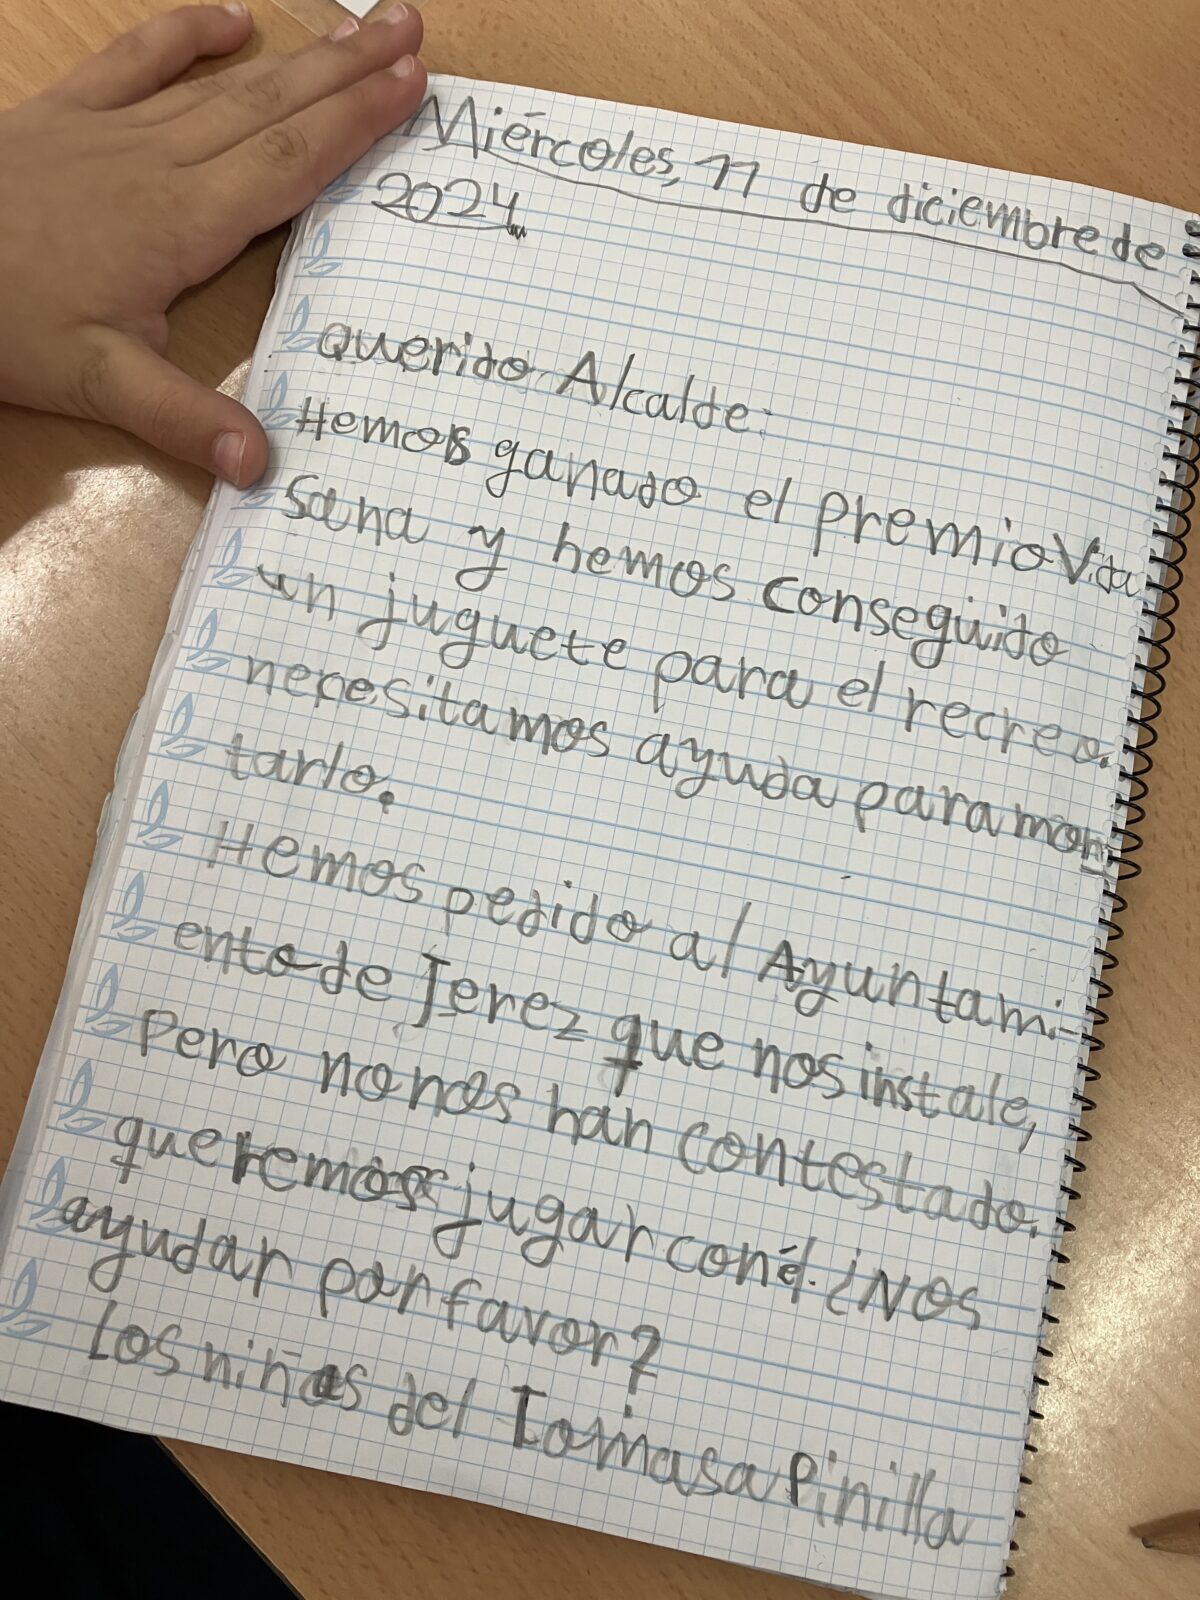 Miércoles, 11 de diciembre de
2024
Querido Alcalde:
Hemos ganado el premio Vida
Sana y hemos conseguido
un juguete para el recreo.
necesitamos ayuda para mon-
tarlo.
Hemos pedido al Ayuntami-
ento de Jerez que nos instale,
pero no nos han contestado.
queremos jugar con él. ¿Nos
ayudar por favor?
Los niños del Tomasa Pinilla